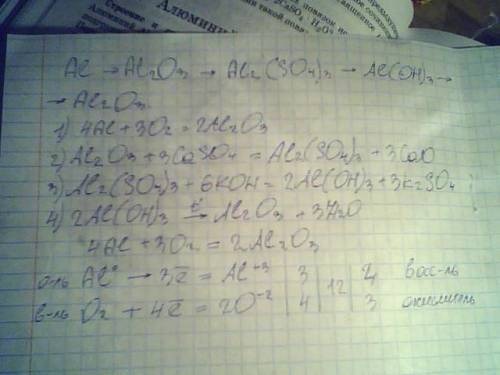 Строение и
Алюминий
CaSO₄ · H₂O
Al → Al₂O₃ → Al₂(SO₄)₃ → Al(OH)₃ →
→ Al₂O₃
1) 4Al + 3O₂ = 2Al₂O₃
2) Al₂O₃ + 3CaSO₄ = Al₂(SO₄)₃ + 3CaO
3) Al₂(SO₄)₃ + 6KOH = 2Al(OH)₃ + 3K₂SO₄
4) 2Al(OH)₃ → Al₂O₃ + 3H₂O
4Al + 3O₂ = 2Al₂O₃
о-ль Al⁰ → 3e̅ = Al⁺³ | 3 | 12 | 4 восс-ль
в-ль O₂ + 4e̅ = 2O⁻² | 4 | | 3 окислитель